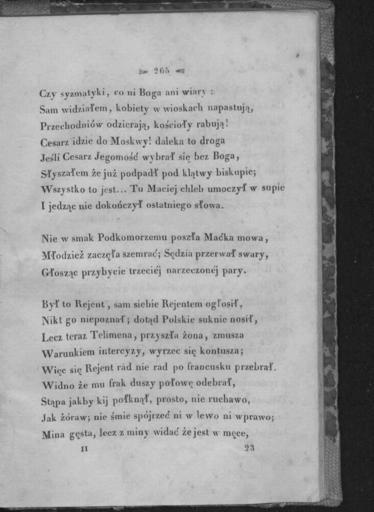 265
Czy syzmatyki, co ni Boga ani wiary :
Sam widziałem, kobiety w wioskach napastują,
Przechodniów odzierają, kościoły rabują!
Cesarz idzie do Moskwy! daleka to droga
Jeśli Cesarz Jegomość wybrał się bez Boga,
Słyszałem że już podpadł pod klątwy biskupie;
Wszystko to jest... Tu Maciej chleb umoczył w supie
I jedząc nie dokończył ostatniego słowa.
Nie w smak Podkomorzemu poszła Maćka mowa,
Młodzież zaczęła szemrać; Sędzia przerwał swary,
Głosząc przybycie trzeciéj narzeczonéj pary.
Był to Rejent, sam siebie Rejentem ogłosił,
Nikt go niepoznał; dotąd Polskie suknie nosił,
Lecz teraz Telimena, przyszła żona, zmusza
Warunkiem intercyzy, wyrzec się kontusza;
Więc się Rejent rad nie rad po francusku przebrał.
Widno że mu frak duszy połowę odebrał,
Stąpa jakby kij połknął, prosto, nie ruchawo,
Jak żóraw; nie śmie spójrzeć ni w lewo ni wprawo;
Mina gęsta, lecz z miny widać że jest w męce,
II 23